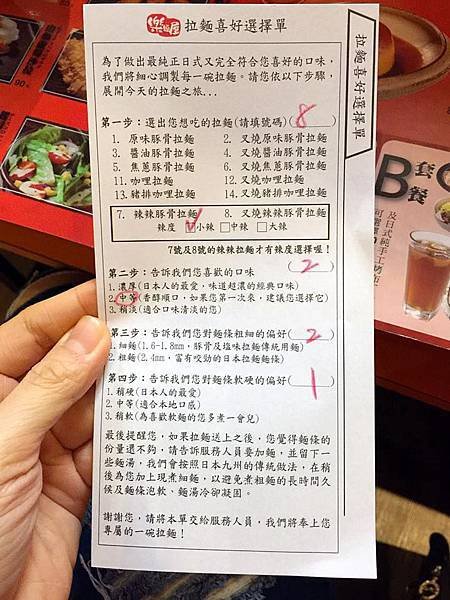 樂麵屋 拉麵喜好選擇單
為了做出最純正日式又完全符合您喜好的口味，
我們將細心調製每一碗拉麵。請您依以下步驟，
展開今天的拉麵之旅...
第一步：選出您想吃的拉麵(請填號碼)(8)
1. 原味豚骨拉麵 2. 叉燒原味豚骨拉麵
3. 醬油豚骨拉麵 4. 叉燒醬油豚骨拉麵
5. 焦蔥豚骨拉麵 6. 叉燒焦蔥豚骨拉麵
11. 咖哩拉麵 12. 叉燒咖哩拉麵
13. 豬排咖哩拉麵 14. 叉燒豬排咖哩拉麵
7. 辣辣豚骨拉麵 8. 叉燒辣辣豚骨拉麵
辣度 ☑小辣 □中辣 □大辣
7號及8號的辣辣拉麵才有辣度選擇喔！
第二步：告訴我們您喜歡的口味 (2)
1. 濃厚(日本人的最愛，味道超濃的經典口味)
2. 中等(香醇順口，如果您第一次來，建議您選擇它)
3. 稍淡(適合口味清淡的您)
第三步：告訴我們您對麵條粗細的偏好(2)
1. 細麵(1.6-1.8mm，豚骨及塩味拉麵傳統用麵)
2. 粗麵(2.4mm，富有咬勁的日本拉麵麵條)
第四步：告訴我們您對麵條軟硬的偏好(1)
1. 稍硬(日本人的最愛)
2. 中等(適合本地口感)
3. 稍軟(為喜歡軟麵的您多煮一會兒)
最後提醒您，如果拉麵送上之後，您覺得麵條的
份量還不夠，請告訴服務人員要加麵，並留下一
些麵湯，我們會按照日本九州的傳統做法，在稍
後為您加上現煮細麵，以避免煮粗麵的長時間久
候及麵條泡軟、麵湯冷卻凝固。
謝謝您，請將本單交給服務人員，我們將奉上您
專屬的一碗拉麵！
拉麵喜好選擇單
B套餐
及日式純手工烤布